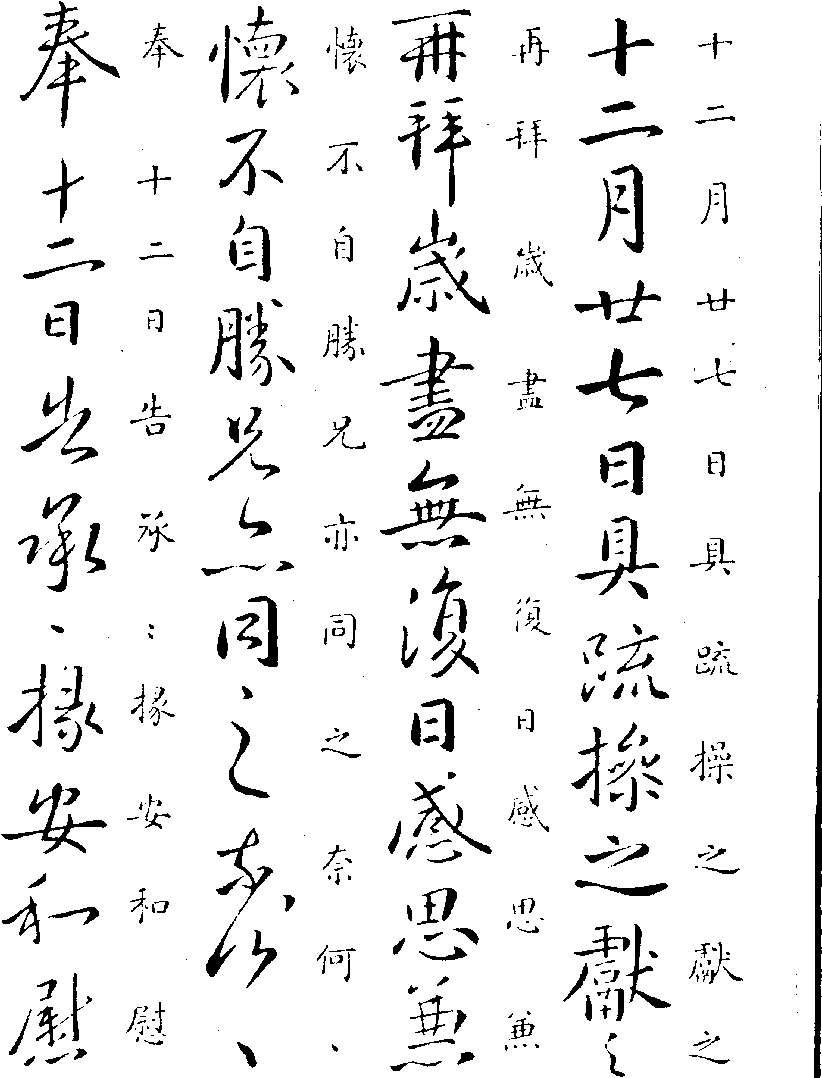 十二月廿七日具疏操之獻之
十二月廿七日具疏操之獻之
再拜歲盡無復日感思兼
再拜歲盡無復日感思兼
懷不自勝兄亦同之奈何、
懷不自勝兄亦同之奈何、
奉十二日告承：掾安和慰
奉十二日告承、掾安和慰